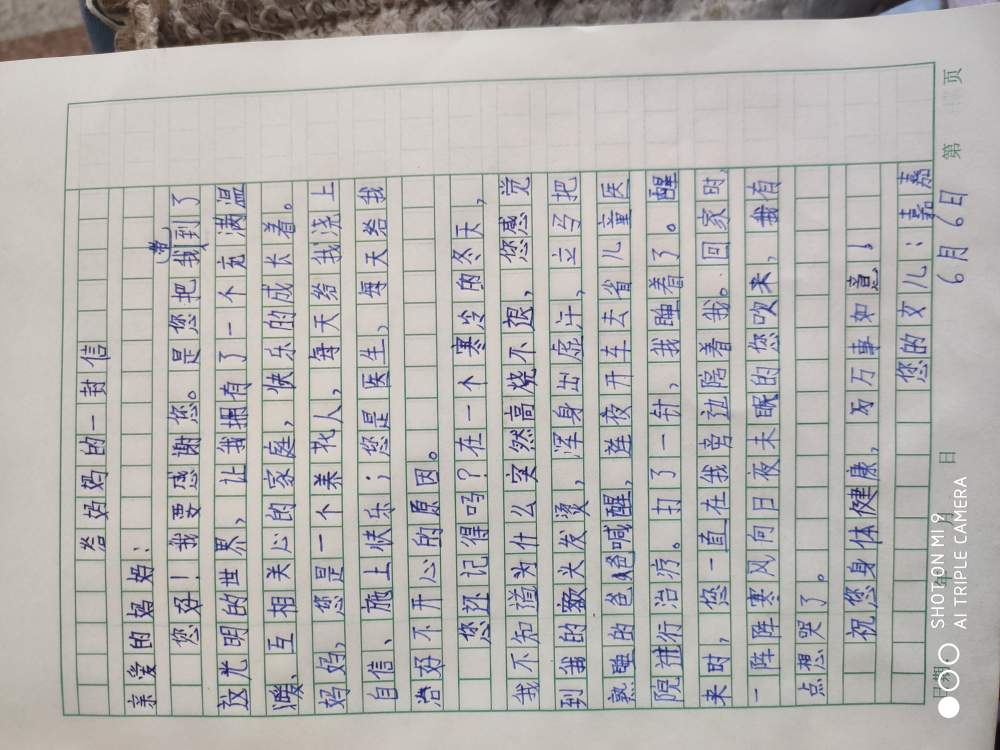 给妈妈的一封信
亲爱的妈妈:
您好!我要感谢您。是您把我(带)到了
这光明的世界,让我拥有了一个充满温
暖、互相关心的家庭,快乐的成长着。
妈妈,您是一个养花人,每天给我浇上
自信、施上快乐;您是医生,每天给我
治好不开心的原因。
您还记得吗?在一个寒冷的冬天,
我不知道为什么突然高烧不退,您感觉
到我的额头发烫,浑身出虚汗,立马把
熟睡的爸爸喊醒,连夜开车去省儿童医
院进行治疗。打了一针,我睡着了。醒
来时,您一直在我旁边陪着我。回家时,
一阵阵寒风向日夜未眠的您吹来,我有
点想哭了。
祝您身体健康,万万事如意!
您的女儿:嘉嘉
6月6日
日期: 年 月 日 第 页
SHOT ON MI 9
AI TRIPLE CAMERA